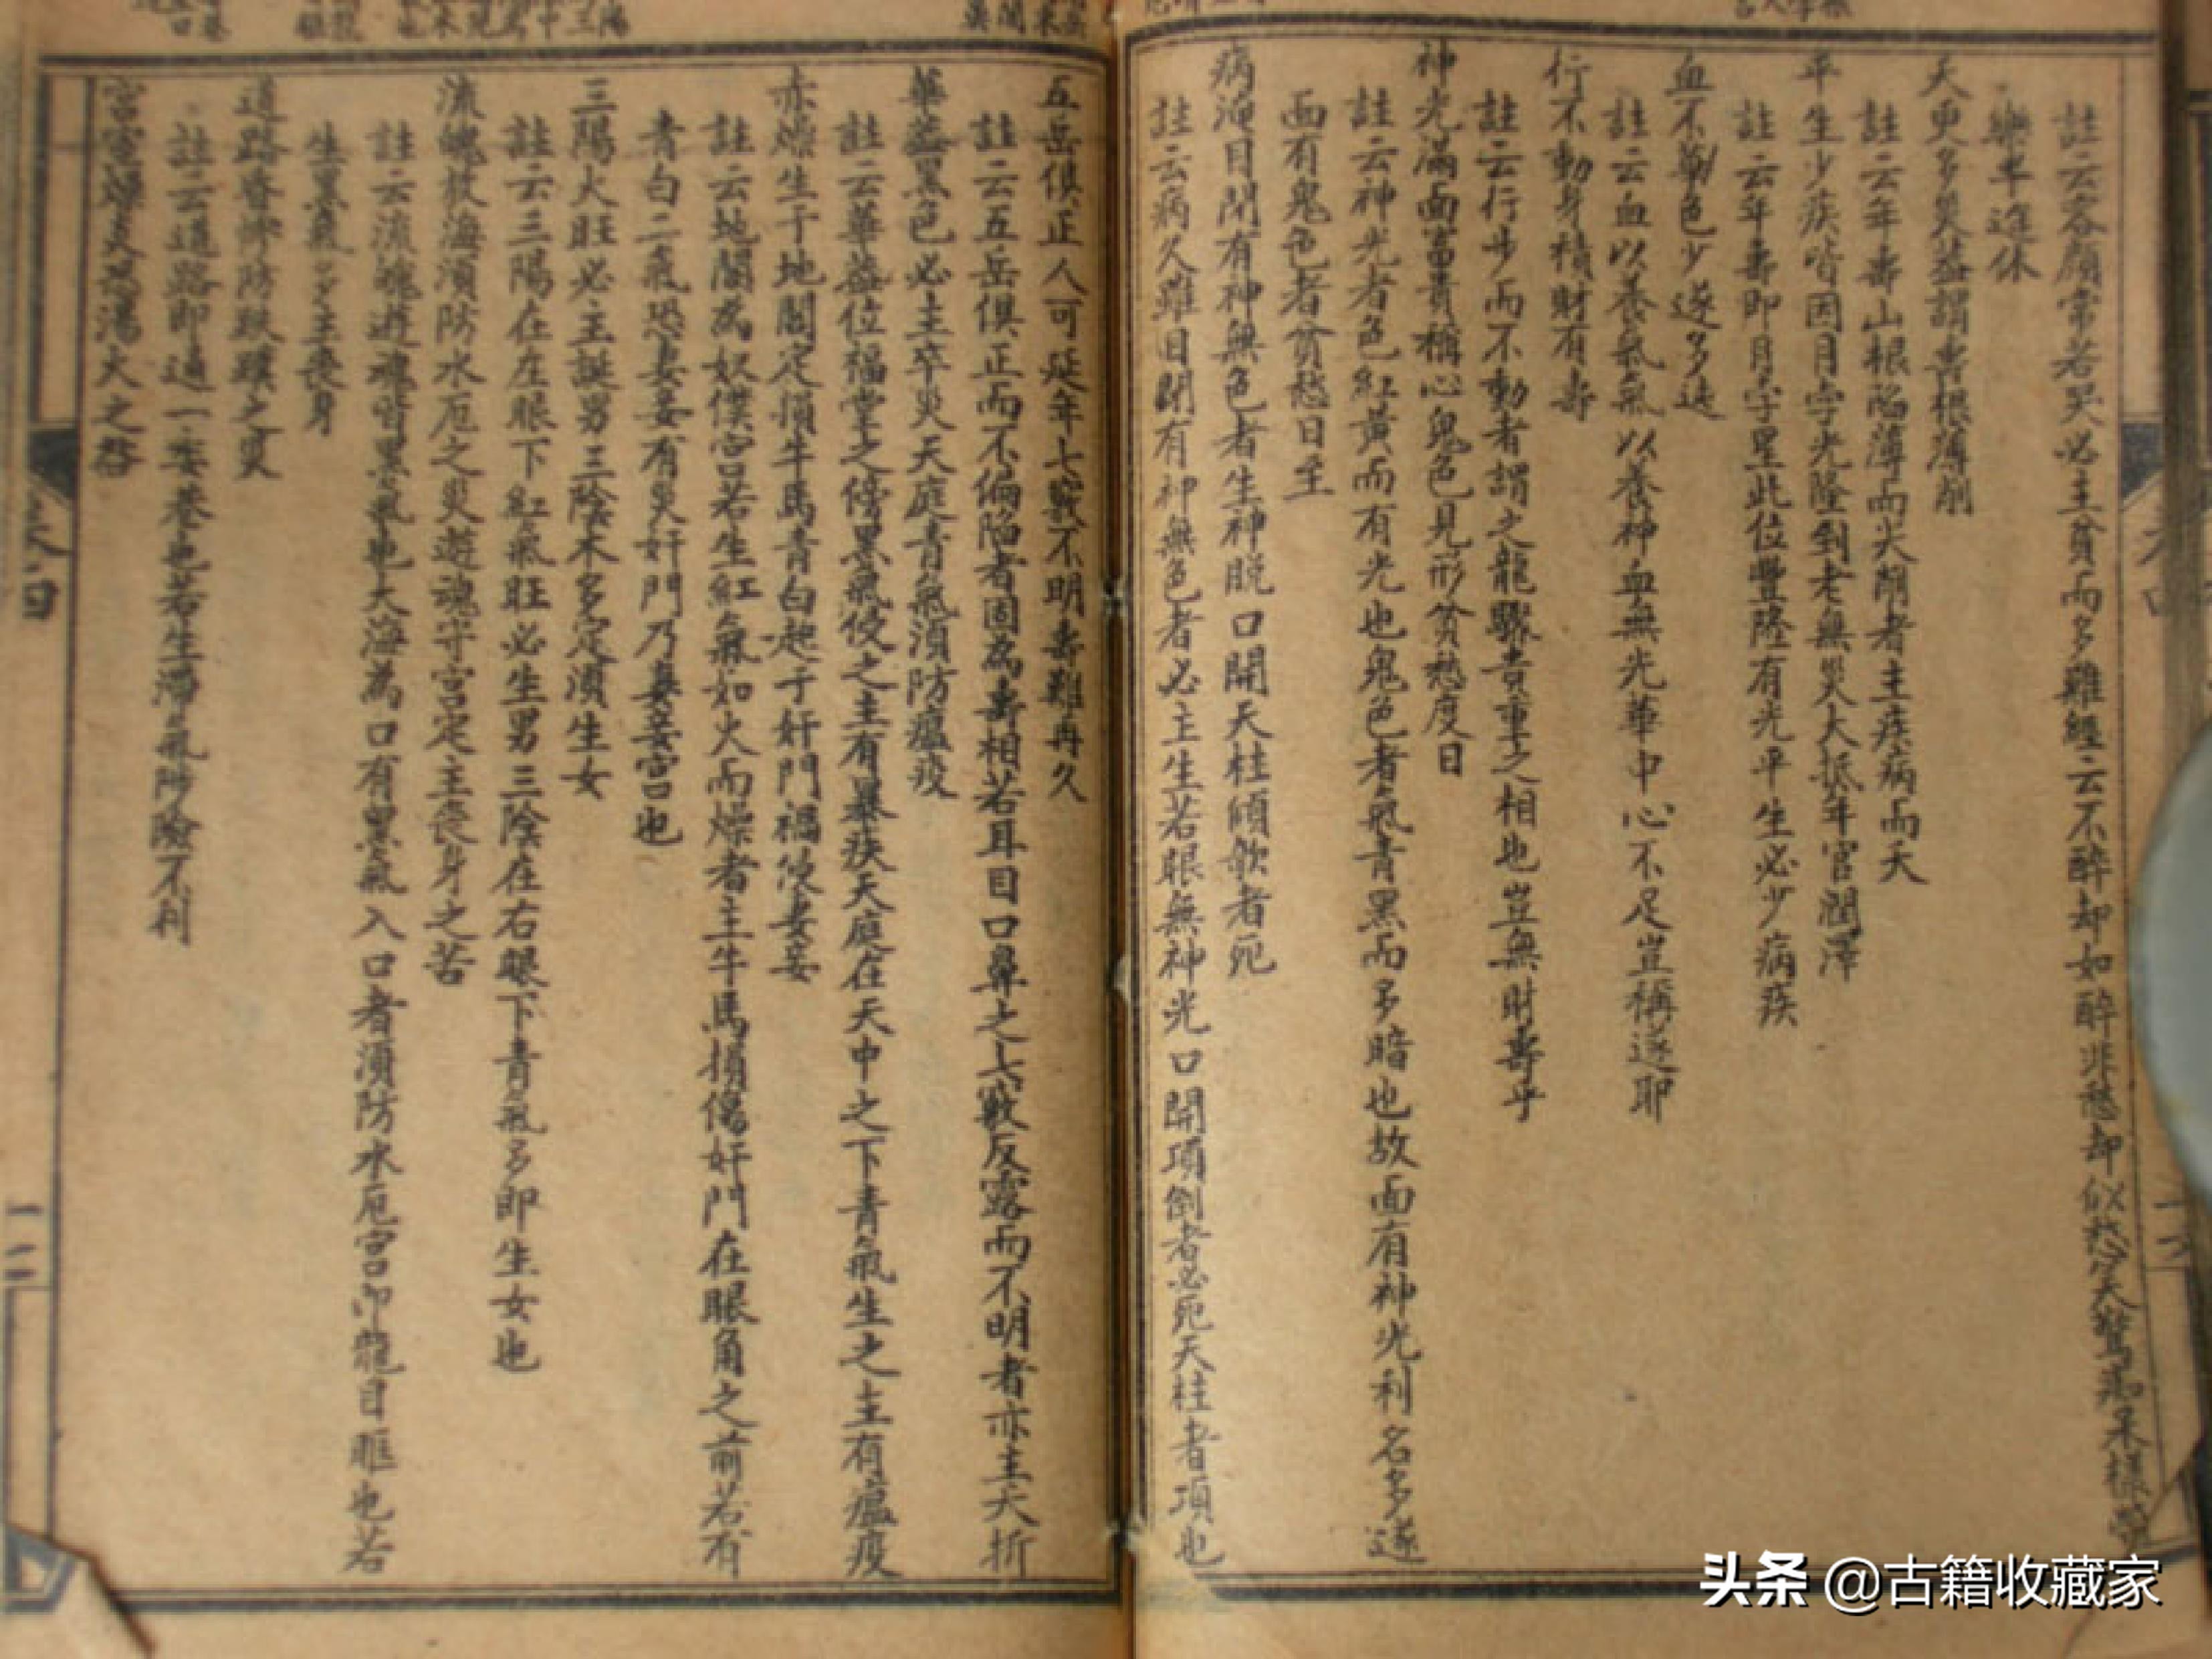 註云容顏常若哭必主貧而多難經云不醉却如醉非愁却似愁笑驚痴呆樣榮
樂半途休
夭更多災蓋謂壽根薄削
註云年壽山根陷薄而尖削者主疾病而夭
平生少疾皆因月孛光隆到老無災大抵年宮潤澤
註云年壽即月孛星此位豐隆有光平生必少病疾
血不華色少遂多迍
註云血以養氣氣以養神血無光華中心不足豈稱遂耶
行不動身積財有壽
註云行步而不動者謂之龍驟貴重之相也豈無財壽乎
神光滿面富貴稱心鬼色見形貧愁度日
註云神光者色紅黃而有光也鬼色者氣青黑而多暗也故面有神光利名多遂
面有鬼色者貧愁日至
病淹目閉有神無色者生神脫口開天柱傾欹者死
註云病久雖目閉有神無色者必主生若眼無神光口開項倒者必死天柱者項也
五岳俱正人可延年七竅不明壽難再久
註云五岳俱正而不偏陷者固為壽相若耳目口鼻之七竅反露而不明者亦主夭折
華蓋黑色必主卒災天庭青氣須防瘟疫
註云華蓋位福堂之傍黑氣侵之主有暴疾天庭在天中之下青氣生之主有瘟疫
赤燥生于地閣定損牛馬青白起于奸門禍侵妻妾
註云地閣為奴僕宮若生紅氣如火而燥者主牛馬損傷奸門在眼角之前若有
青白二氣恐妻妾有災奸門乃妻妾宮也
三陽火旺必主誕男三陰木多定須生女
註云三陽在左眼下紅氣旺必生男三陰在右眼下青氣多即生女也
流魄放海須防水厄之災遊魂守宮定主喪身之苦
註云流魄遊魂皆黑氣也大海為口有黑氣入口者須防水厄宮即龍目眶也若
生黑氣多主喪身
道路昏慘防跌蹼之災
註云道路即通一委巷也若生滯氣防險不利
宮室燥炎恐湯火之咎
卷四
一二
頭条 @古籍收藏家